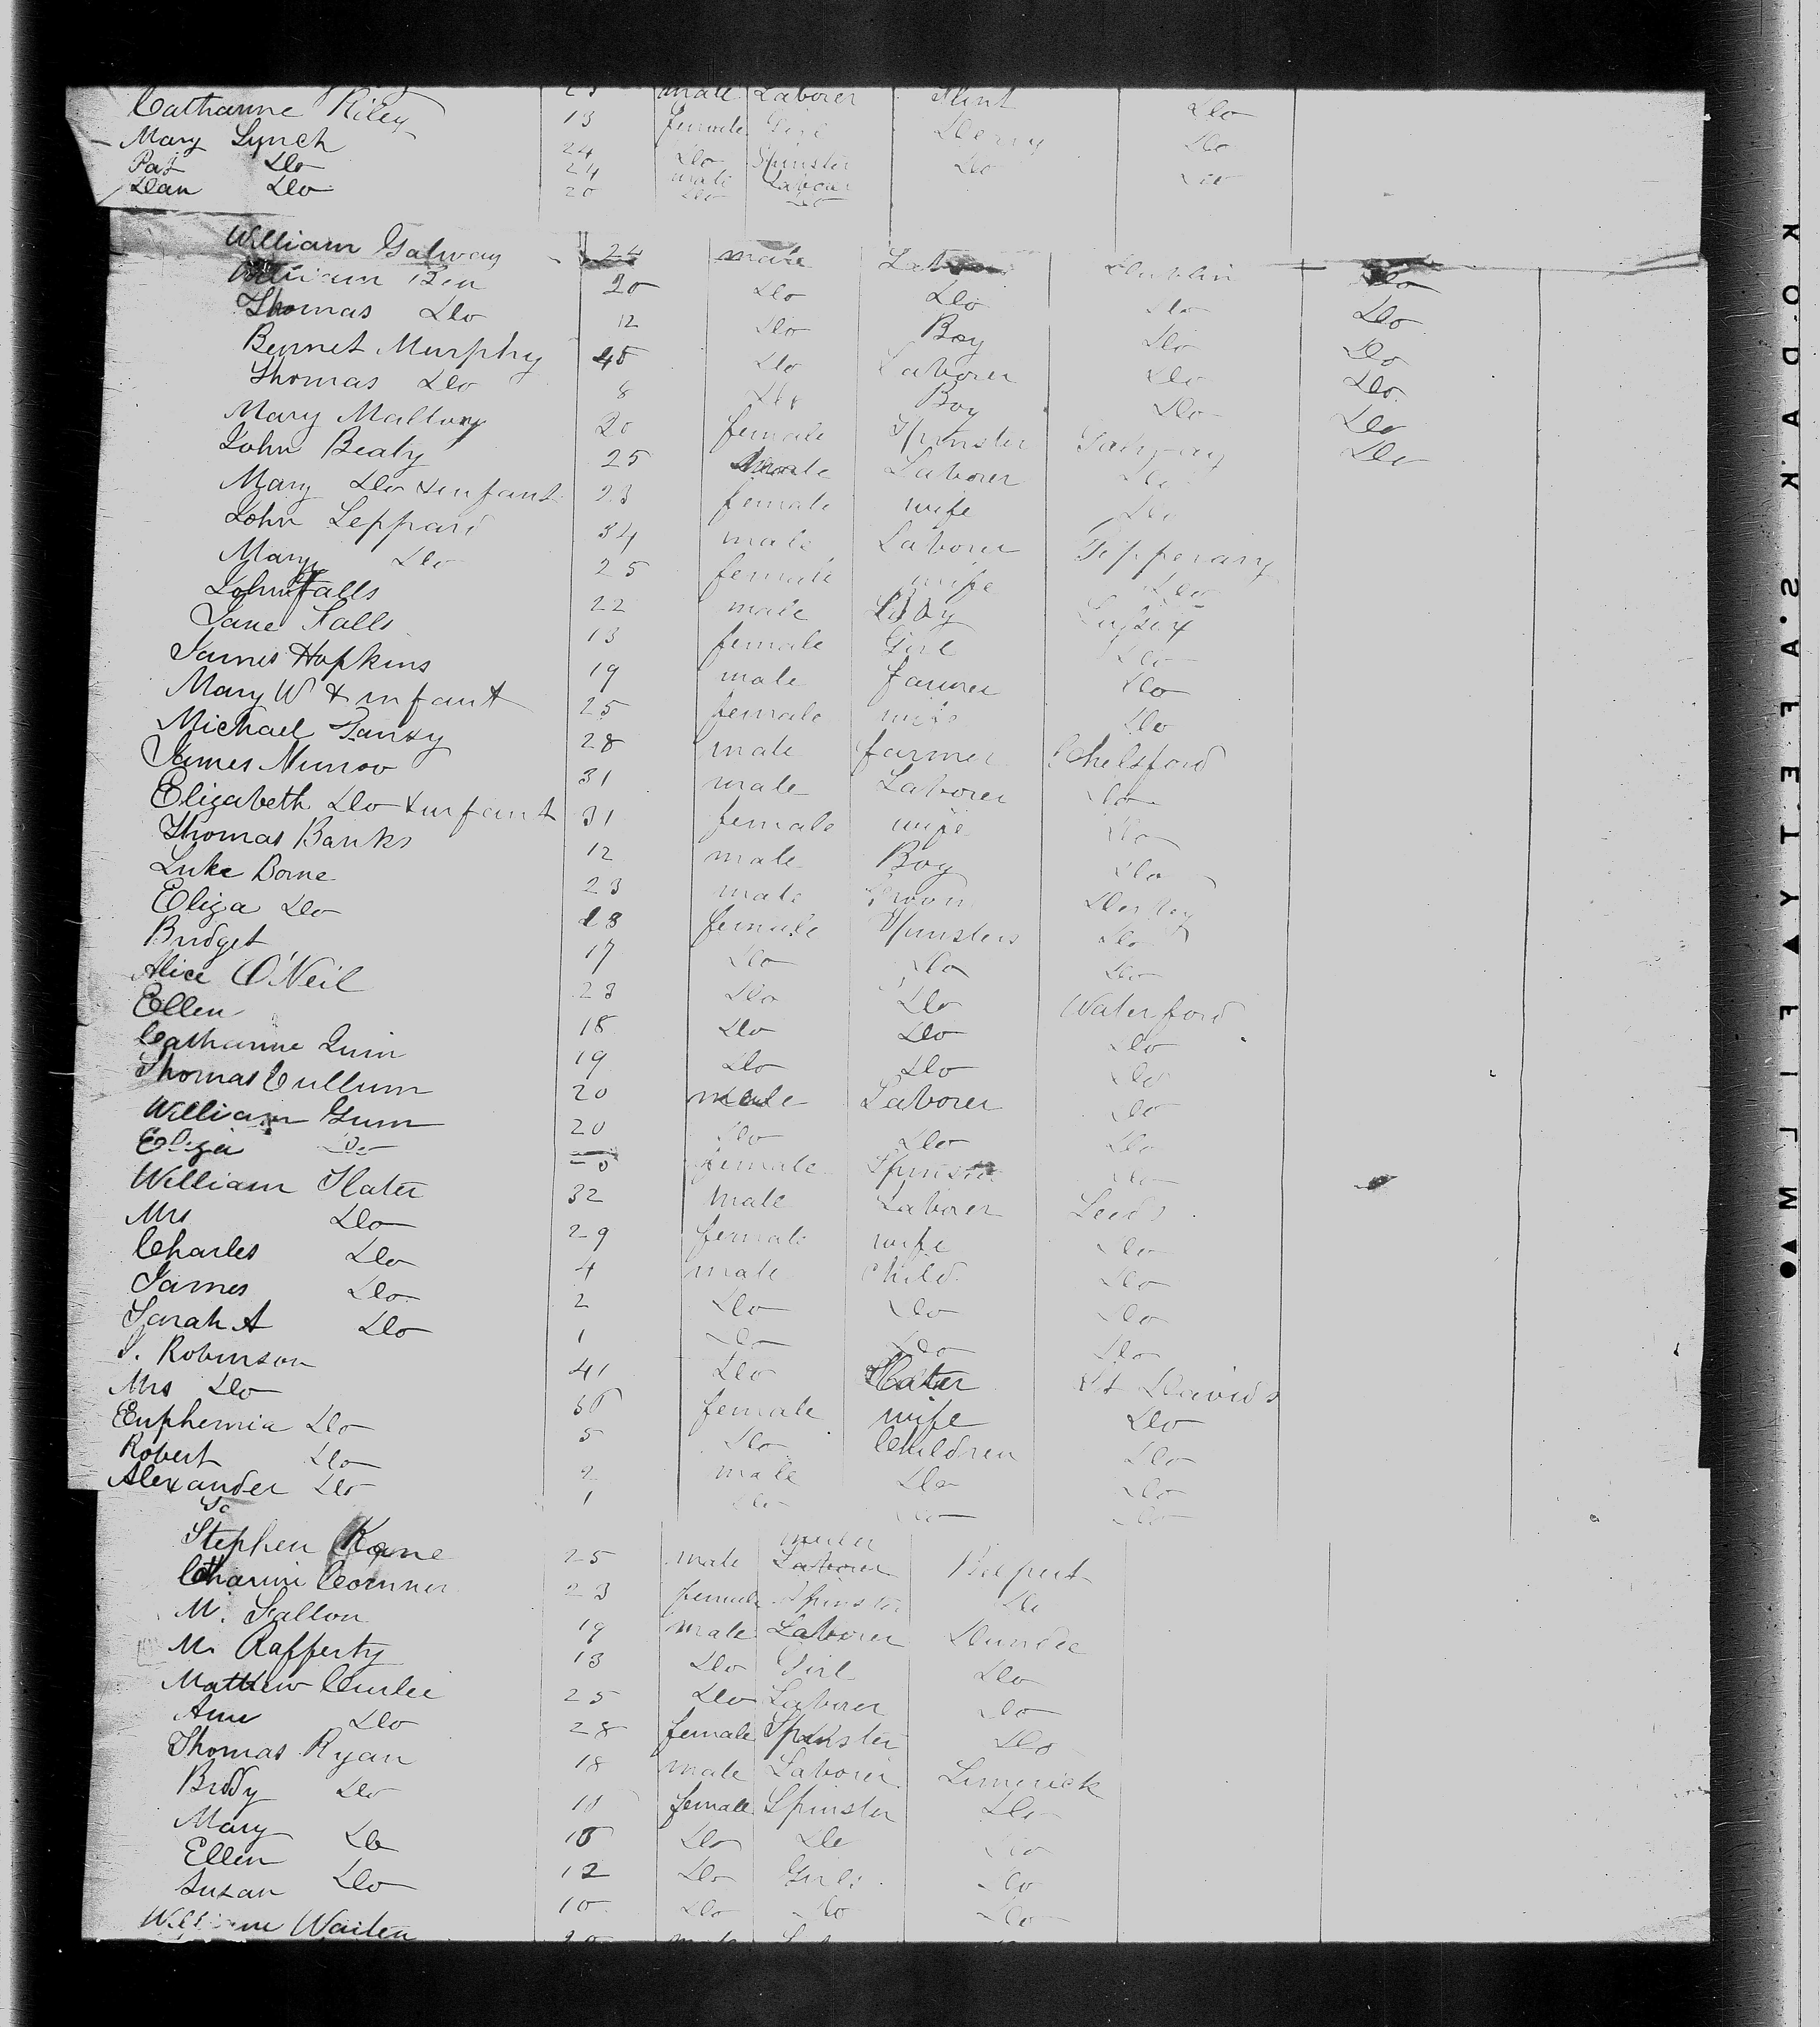 23 male Laborer Flint Do
Catharine Riley 13 female Girl Derry Do
Mary Lynch 24 Do Spinster Do Do
Pat Do 24 male Labour
Dan Do 20 Do Do
William Galway 24 male Dublin Do
William 20 Do Do Do Do
Thomas Do 12 Do Boy Do Do
Bennet Murphy 45 Do Laborer Do Do
Thomas Do 8 Do Boy Do Do
Mary Mallory 20 female Spinster Galway Do
John Beaty 25 male Laborer Do
Mary Do & infant 23 female wife Do
John Leppard 34 male Laborer Tipperary
Mary Do 25 female wife Do
John Falls 22 male
Jane Falls 13 female Girl Do
James Hopkins 19 male farmer Do
Mary W & infant 25 female wife Do
Michael 28 male farmer Chelsford
James Munroo 31 male Laborer Do
Elizabeth Do & infant 31 female wife Do
Thomas Banks 12 male Boy Do
Luke Borne 23 male
Eliza Do 18 female Spinsters Do
Bridget 17 Do Do Do
Alice O'Neil 23 Do Do Waterford
Ellen 18 Do Do Do
Catharine Quin 19 Do Do Do
Thomas Cullum 20 male Laborer Do
William Gunn 20 Do Do Do
Eliza Do female Spinster Do
William Slater 32 male Laborer Leeds
Mrs Do 29 female wife Do
Charles Do 4 male child Do
James Do 2 Do Do Do
Sarah A Do 1 Do Do Do
Robinson 41 Do Slater St Davids
Mrs Do 36 female wife Do
Euphemia Do 5 Do Children Do
Robert Do 2 male Do Do
Alexander Do 1 Do Do Do
Stephen Kane 25 male Laborer Belfast
23 female Spinster Do
M. Fallon 19 male Laborer Dundee
M. Rafferty 13 Do Girl Do
Matthew Curlee 25 Do Laborer Do
Ann Do 28 female Spinster Do
Thomas Ryan 18 male Laborer Limerick
Biddy Do female Spinster Do
Mary Do 18 Do Do Do
Ellen 12 Do Girls Do
Susan Do 10 Do Do Do
William 20 male
KODAK S.A.F.E.T.Y ▲ FILM ▲●